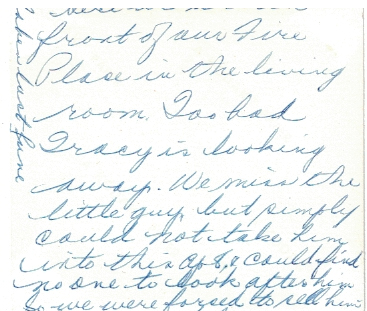 front of our Fire
Place in the living
room. Too bad
Tracy is looking
away. We miss the
little guy, but simply
could not take him
into this apt, & could find
no one to look after him
So we were forsed to sell him
taken last June